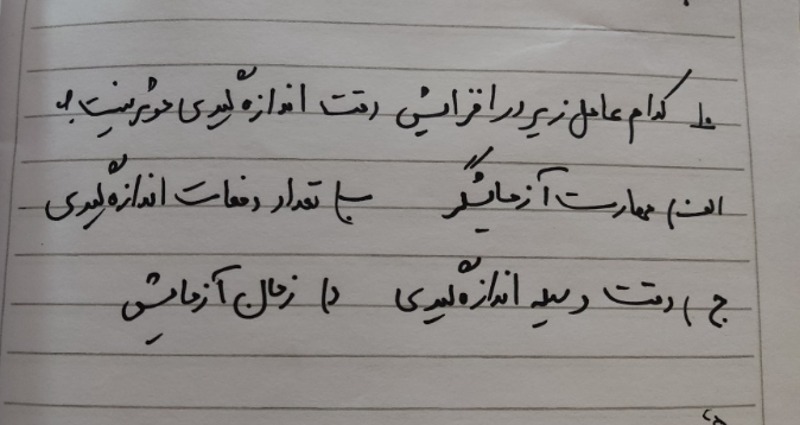 ۱. کدام عامل زیر در افزایش دقت اندازه گیری موثر نیست؟
الف) مهارت آزمایشگر ب) تعداد دفعات اندازه گیری
ج) دقت وسیله اندازه گیری د) زمان آزمایش